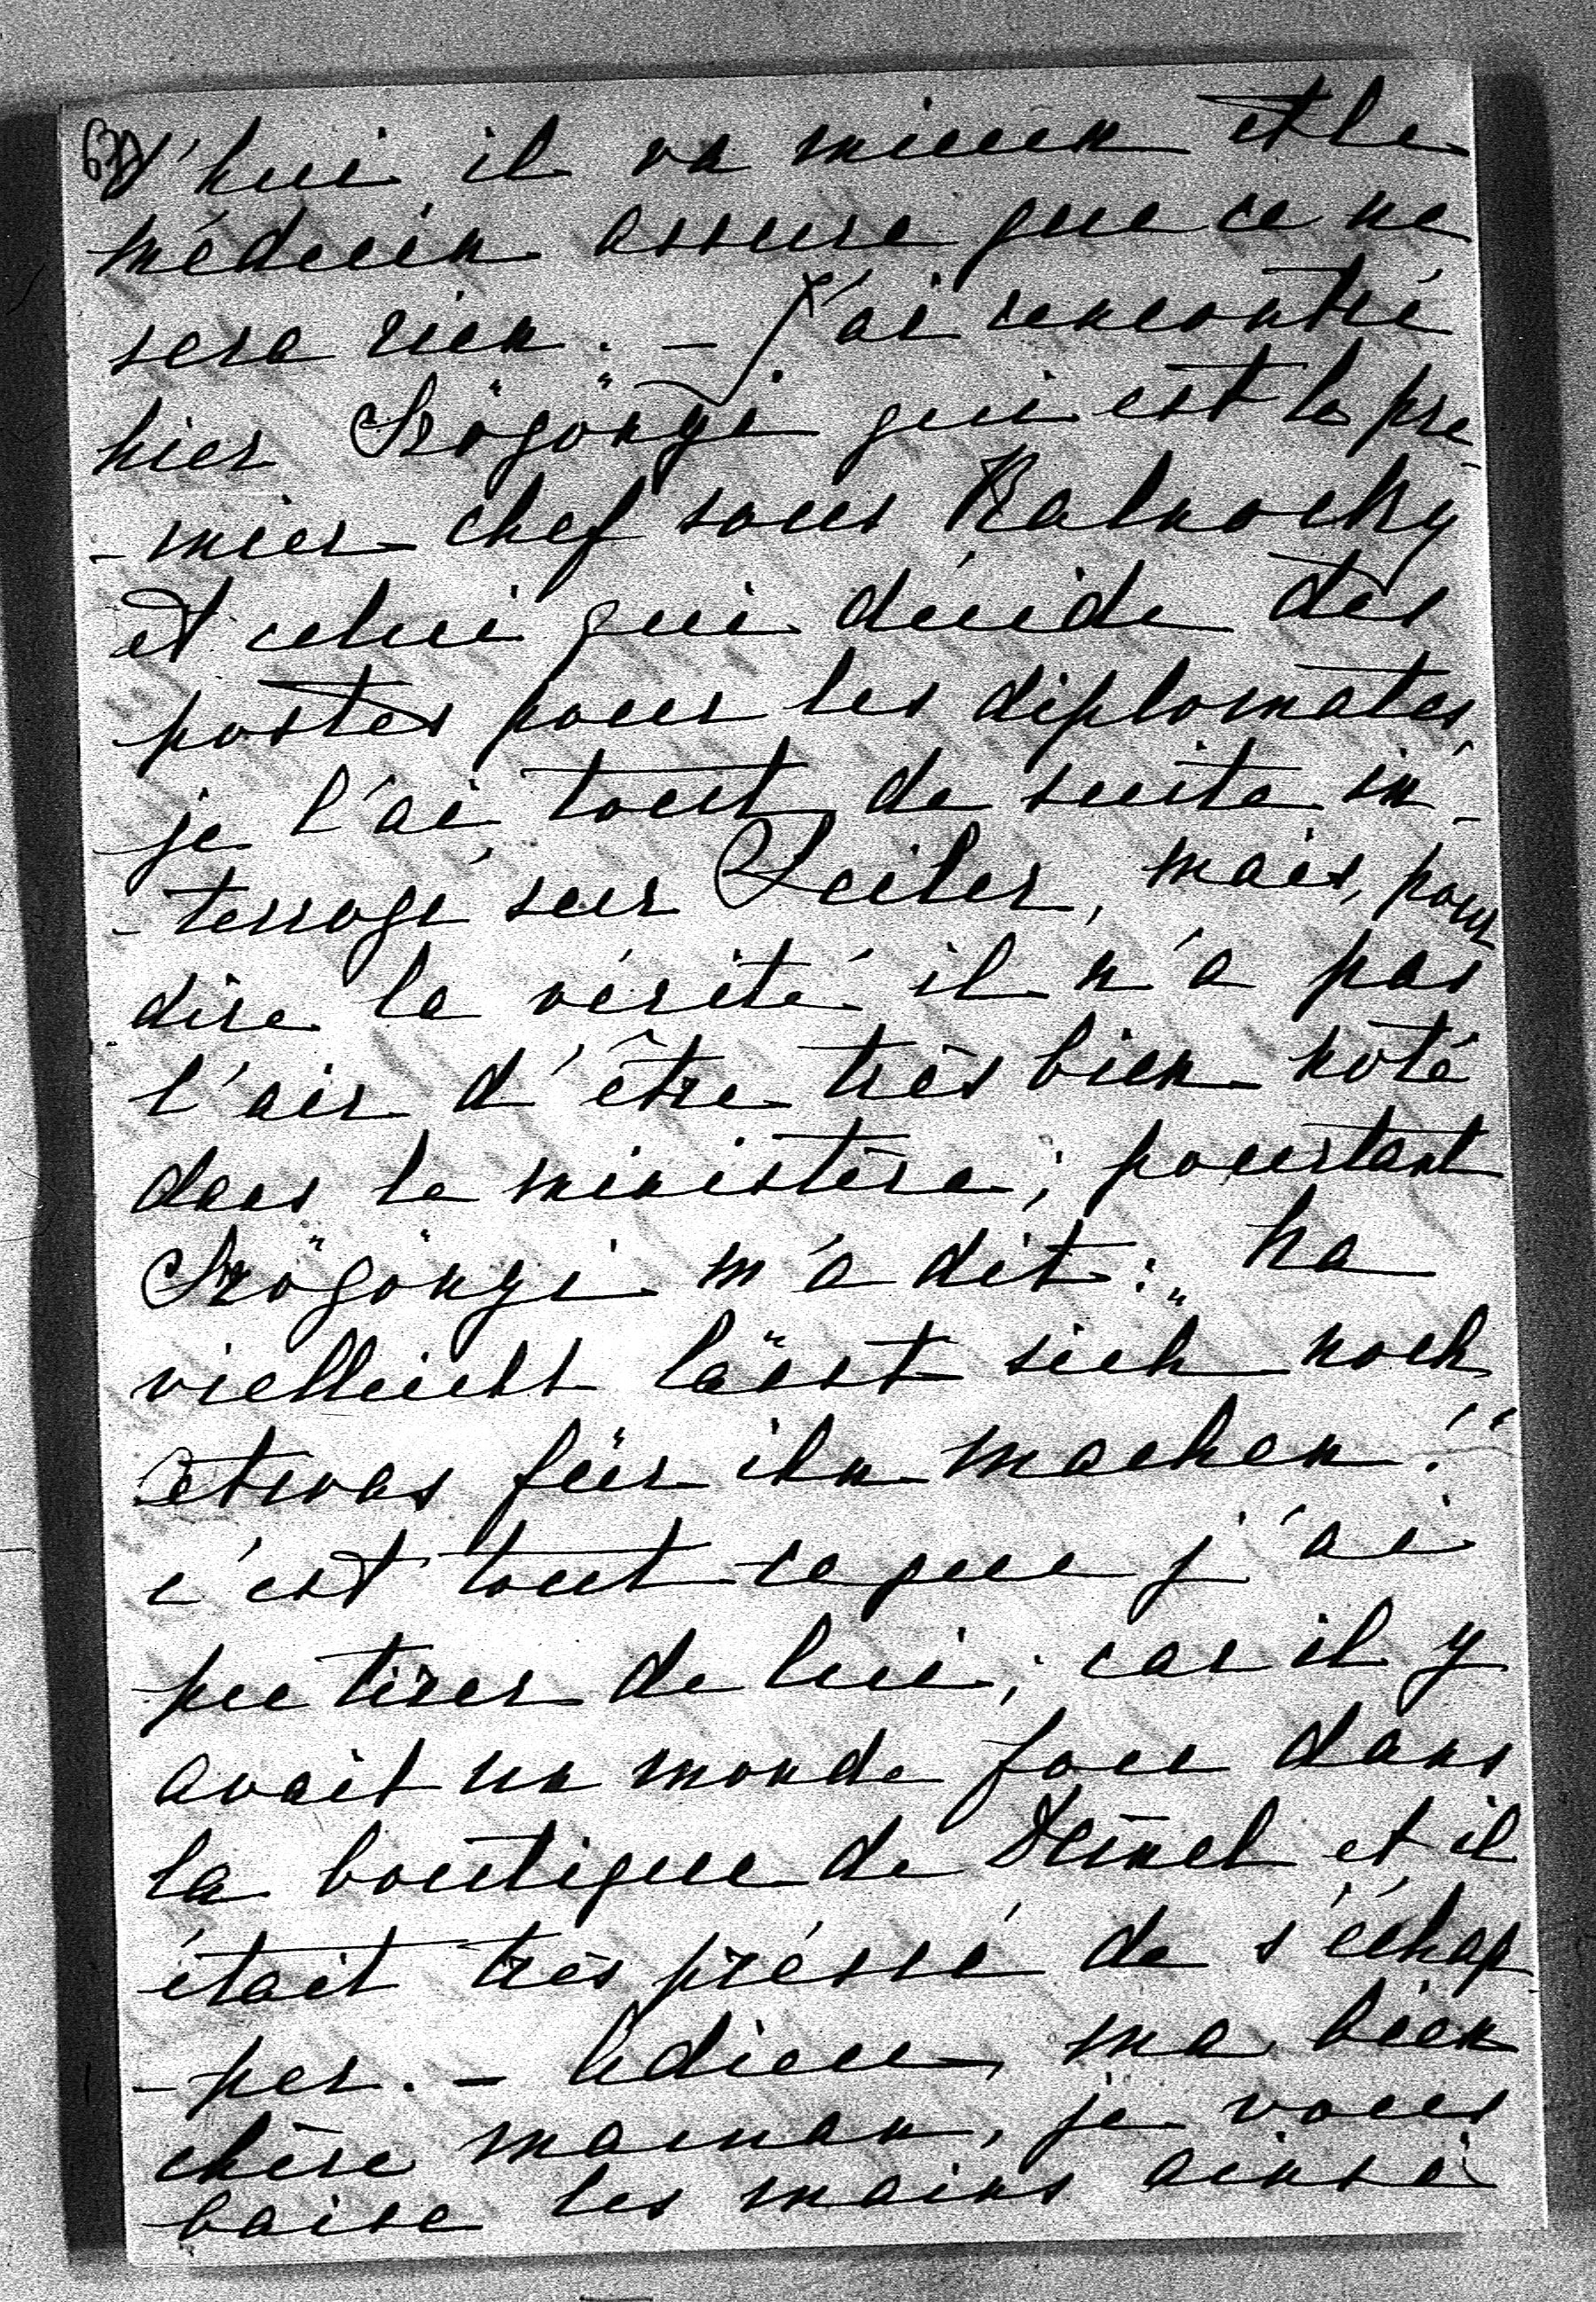 d'hui il va mieux et le
médecin assure que ce ne
sera rien. – J'ai rencontré
hier Szögönyi qui est le pre-
-mier chef sous Kalnocky
et celui qui décide des
postes pour les diplomates,
je l'ai tout de suite in-
-terrogé sur Seiler, mais, pour
dire la vérité il n'a pas
l'air d'être très bien noté
dans le ministère; pourtant
Szögönyi m'a dit: „ha
vielleicht lässt sich noch
etwas für ihn machen!“
c'est tout ce que j'ai
pu tirer de lui; car il y
avait un monde fou dans
la boutique de Demel et il
était très préssé de s'échap-
-per. – Adieu, ma bien
chère maman, je vous
baise les mains ainsi